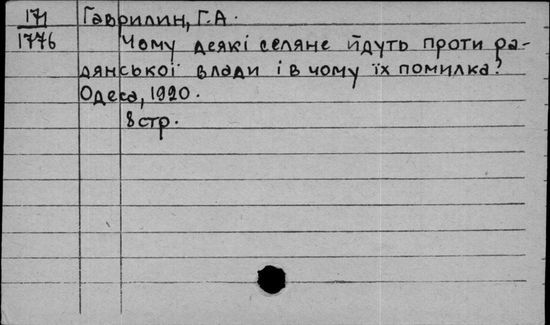 171 Гаврилин, Г.А.
1776 Чому деякі селяне йдуть проти ра-
дянської влади і в чому їх помилка?
Одеса, 1920.
8 стр.